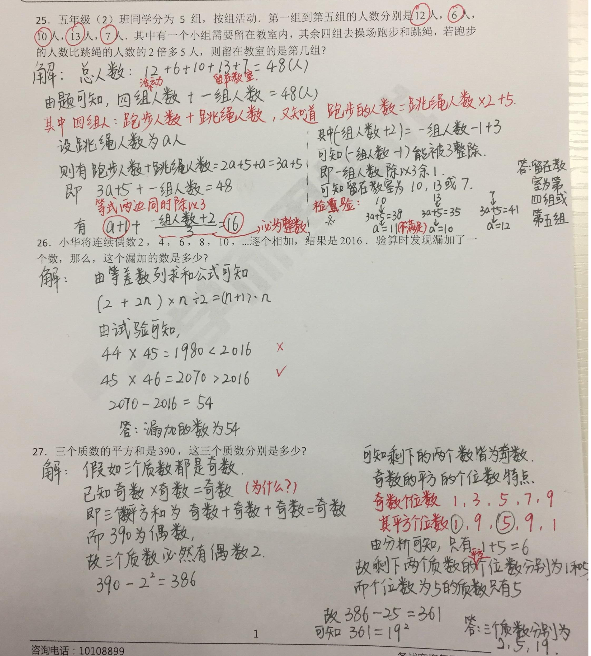 25. 五年级（2）班同学分为 5 组，按组活动．第一组到第五组的人数分别是12人，6人，
10人，13人，7人．其中有一个小组需要留在教室内，其余四组去操场跑步和跳绳，若跑步
的人数比跳绳的人数的2倍多5人，则留在教室的是第几组?
解：总人数：12+6+10+13+7=48(人)
活动 留在教室
由题可知，四组人数 + 一组人数 = 48(人)
其中四组人：跑步人数+跳绳人数，又知道 跑步的人数=跳绳人数×2+5.
设跳绳人数为a人
则有跑步人数+跳绳人数=2a+5+a=3a+5
即 3a+5+一组人数=48
等式两边同时除以3
有 (a+1)+ 一组人数+2/3 =16 必为整数
其中(一组人数+2)=一组人数-1+3
可知(一组人数-1)能被3整除.
即一组人数除以3余1.
可知留在教室为10,13或7.
检验: 10 13 7
3a+5=38 3a+5=35 3a+5=41
a=11(不满足) a=10 a=12
答:留在教
室为第
四组或
第五组
26. 小华将连续偶数2，4，6，8，10，…逐个相加，结果是2016．验算时发现漏加了一
个数，那么，这个漏加的数是多少?
解：由等差数列求和公式可知
(2+2n)×n÷2=(n+1)·n
由试验可知,
44×45=1980<2016 ×
45×46=2070>2016 ✓
2070-2016=54
答:漏加的数为54
27. 三个质数的平方和是390，这三个质数分别是多少?
解：假如三个质数都是奇数.
已知奇数×奇数=奇数 (为什么?)
即三个平方和为 奇数+奇数+奇数=奇数
而390为偶数,
故三个质数必然有偶数2.
390-2²=386
可知剩下的两个数皆为奇数.
奇数的平方的个位数特点.
奇数个位数 1,3,5,7,9
其平方个位数 1,9,5,9,1
由分析可知,只有 1+5=6
故剩下两个质数的平方个位数分别为1和5
而个位数为5的质数只有5
故 386-25=361
可知 361=19²
答:三个质数分别为
2,5,19.
1
咨询电话：10108899